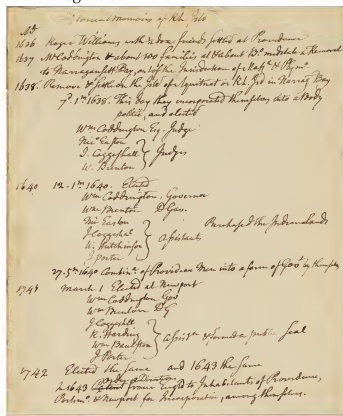 Memoirs of Rh. Isld
Ao
1636 Roger Williams with ½ doz. friends settled at Providence
1637 Mr Coddington & about 100 families at & about Bo. meditate a Removal
to Narragansett Bay, out of the Jurisdiction of Mass. & Plym.
1638. Remove & settle on the Isle of Aquetneat or Rh. Isd in Narrag. Bay
7. 1m 1638. This day they incorporated themselves into a Body
politic, and elected
Wm Coddington Esq. Judge
Nic. Easton
J. Coggeshall } Judges
W. Brenton
1640 12.1m 1640. Elected
Wm Coddington, Governor
Wm Brenton D Gov.
Nic. Easton Purchased the Indian Lands
J Coggeshal
W. Hutchinson } assistants
J porter
27.5th 1640 Combina. of Providence Men into a form of Govt by themselves
March 1 Elected at Newport
Wm Coddington Gov
Wm Brenton D G
J Coggeshall
R. Harding
Wm Baulston } assists & found a public Seal
J Porter
1742 Elected the same and 1643 the same
In 1643 to Inhabitants of Providence,
Portsmo. & Newport for Incorporation, among themselves.